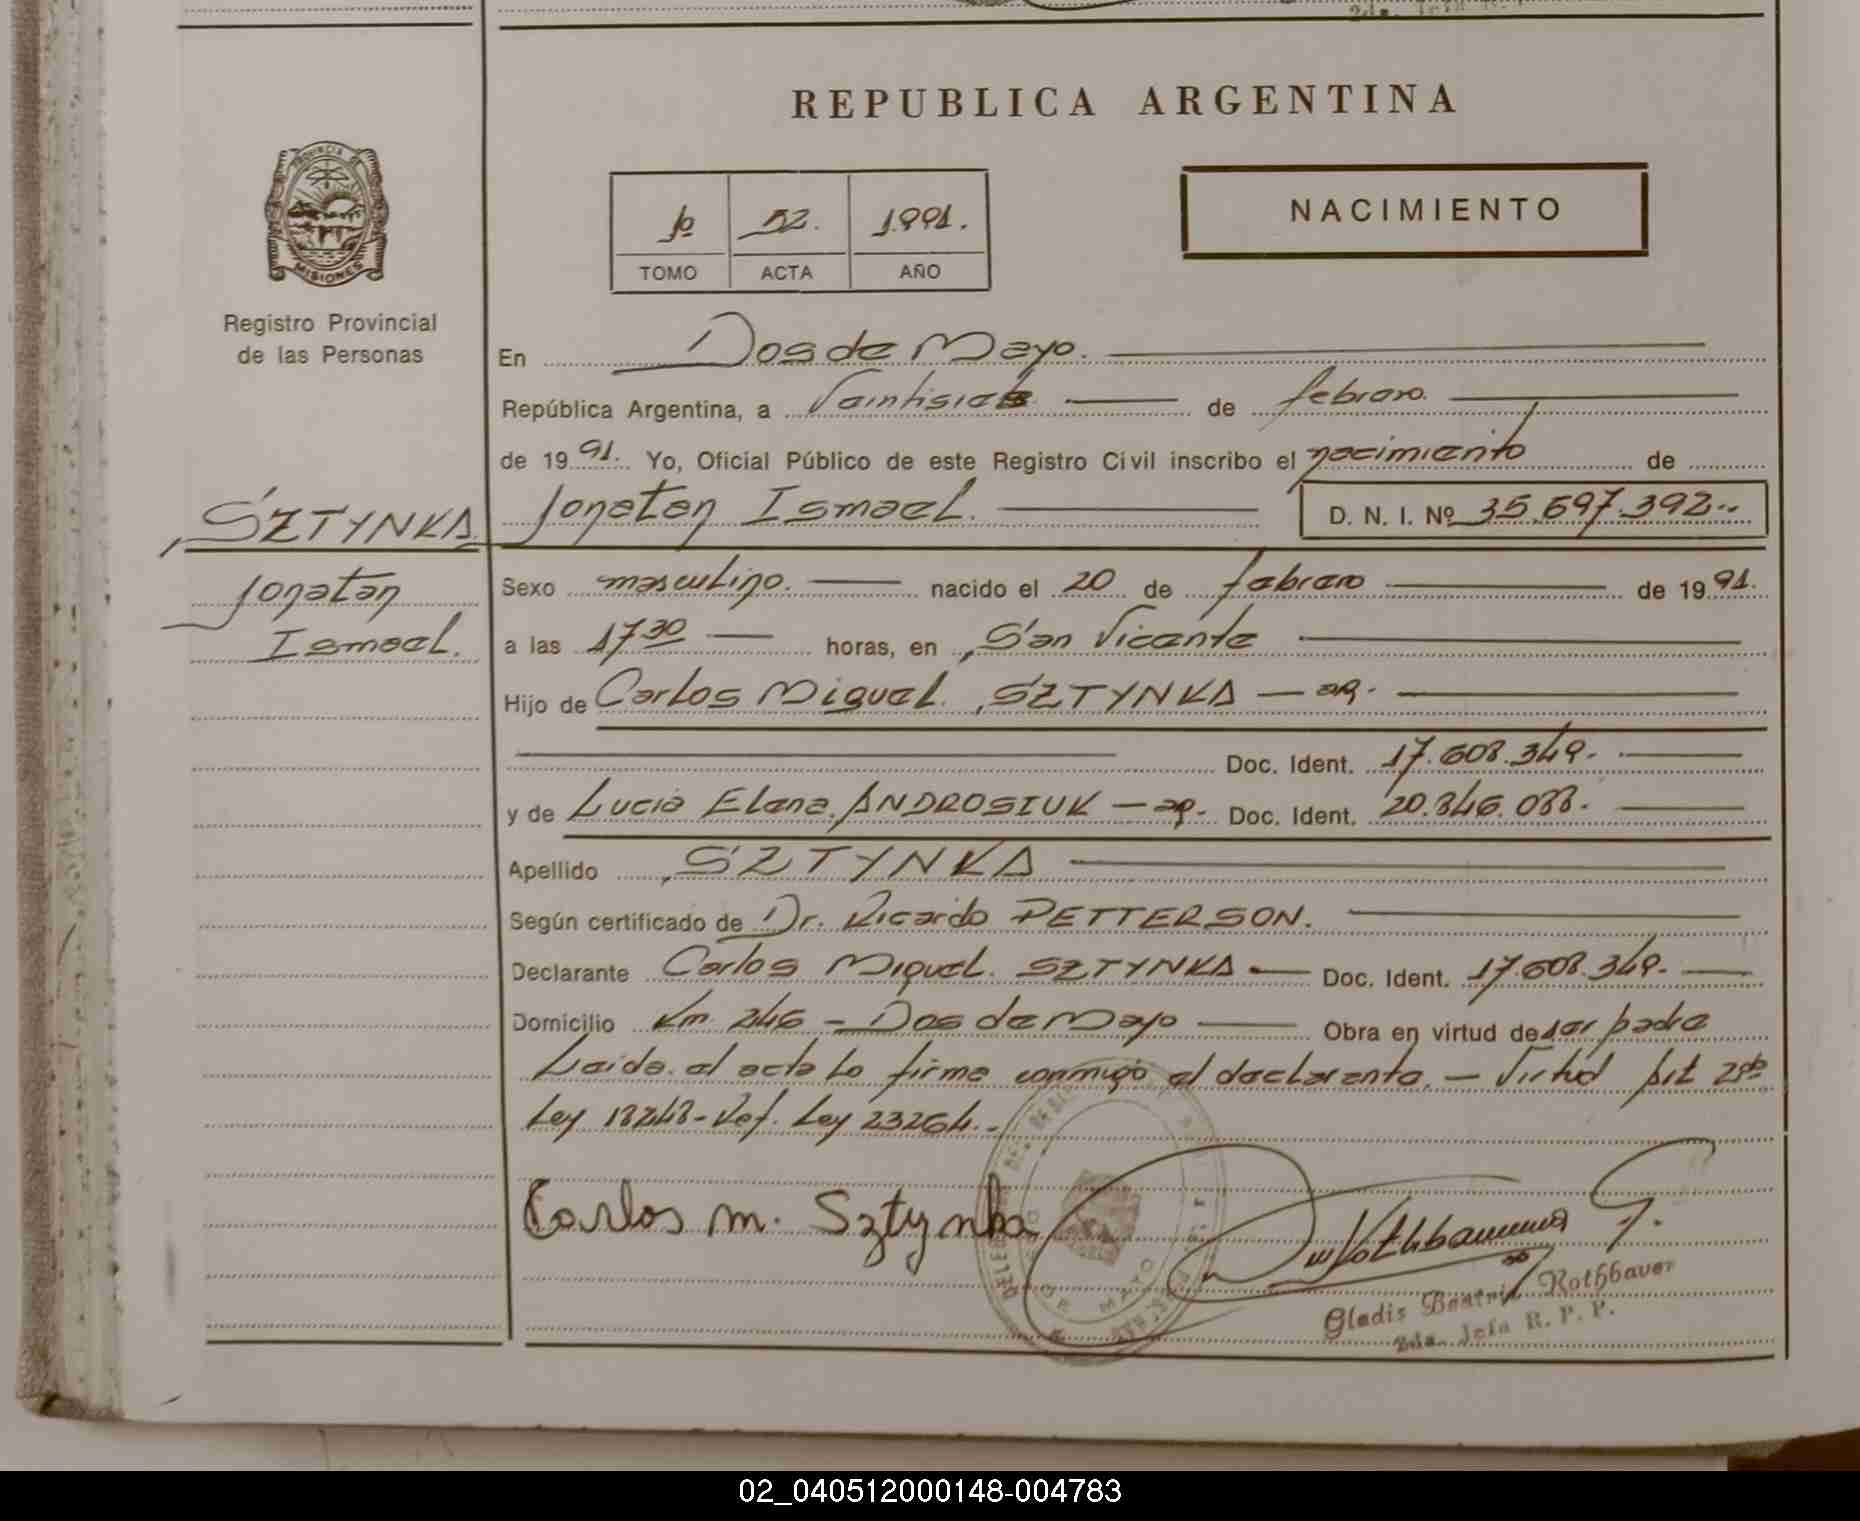 REPUBLICA ARGENTINA
PROVINCIA DE
MISIONES
Registro Provincial
de las Personas
1º 52. 1.991.
TOMO ACTA AÑO
NACIMIENTO
En Dos de Mayo.
República Argentina, a Veintisiete de febrero.
de 1991. Yo, Oficial Público de este Registro Civil inscribo el nacimiento de
SZTYNKA Jonatan Ismael. D. N. I. Nº 35.697.392..
Jonatan
Ismael.
Sexo masculino. nacido el 20 de febrero de 1991.
a las 17 30 horas, en San Vicente
Hijo de Carlos Miguel SZTYNKA — ar.
Doc. Ident. 17.608.349.
y de Lucia Elena ANDROSIUK — ar. Doc. Ident. 20.846.088.
Apellido SZTYNKA
Según certificado de Dr. Ricardo PETTERSON.
Declarante Carlos Miguel SZTYNKA. Doc. Ident. 17.608.349.
Domicilio Km 246 - Dos de Mayo Obra en virtud de ser padre
Leida el acta lo firma conmigo el declarante. — Virtud
Ley 18248 - Ref. Ley 23264.-
Carlos m. Sztynka
DE MAYO
Gladis Beatriz Rothbauer
2da. Jefa R. P. P.
02_040512000148-004783